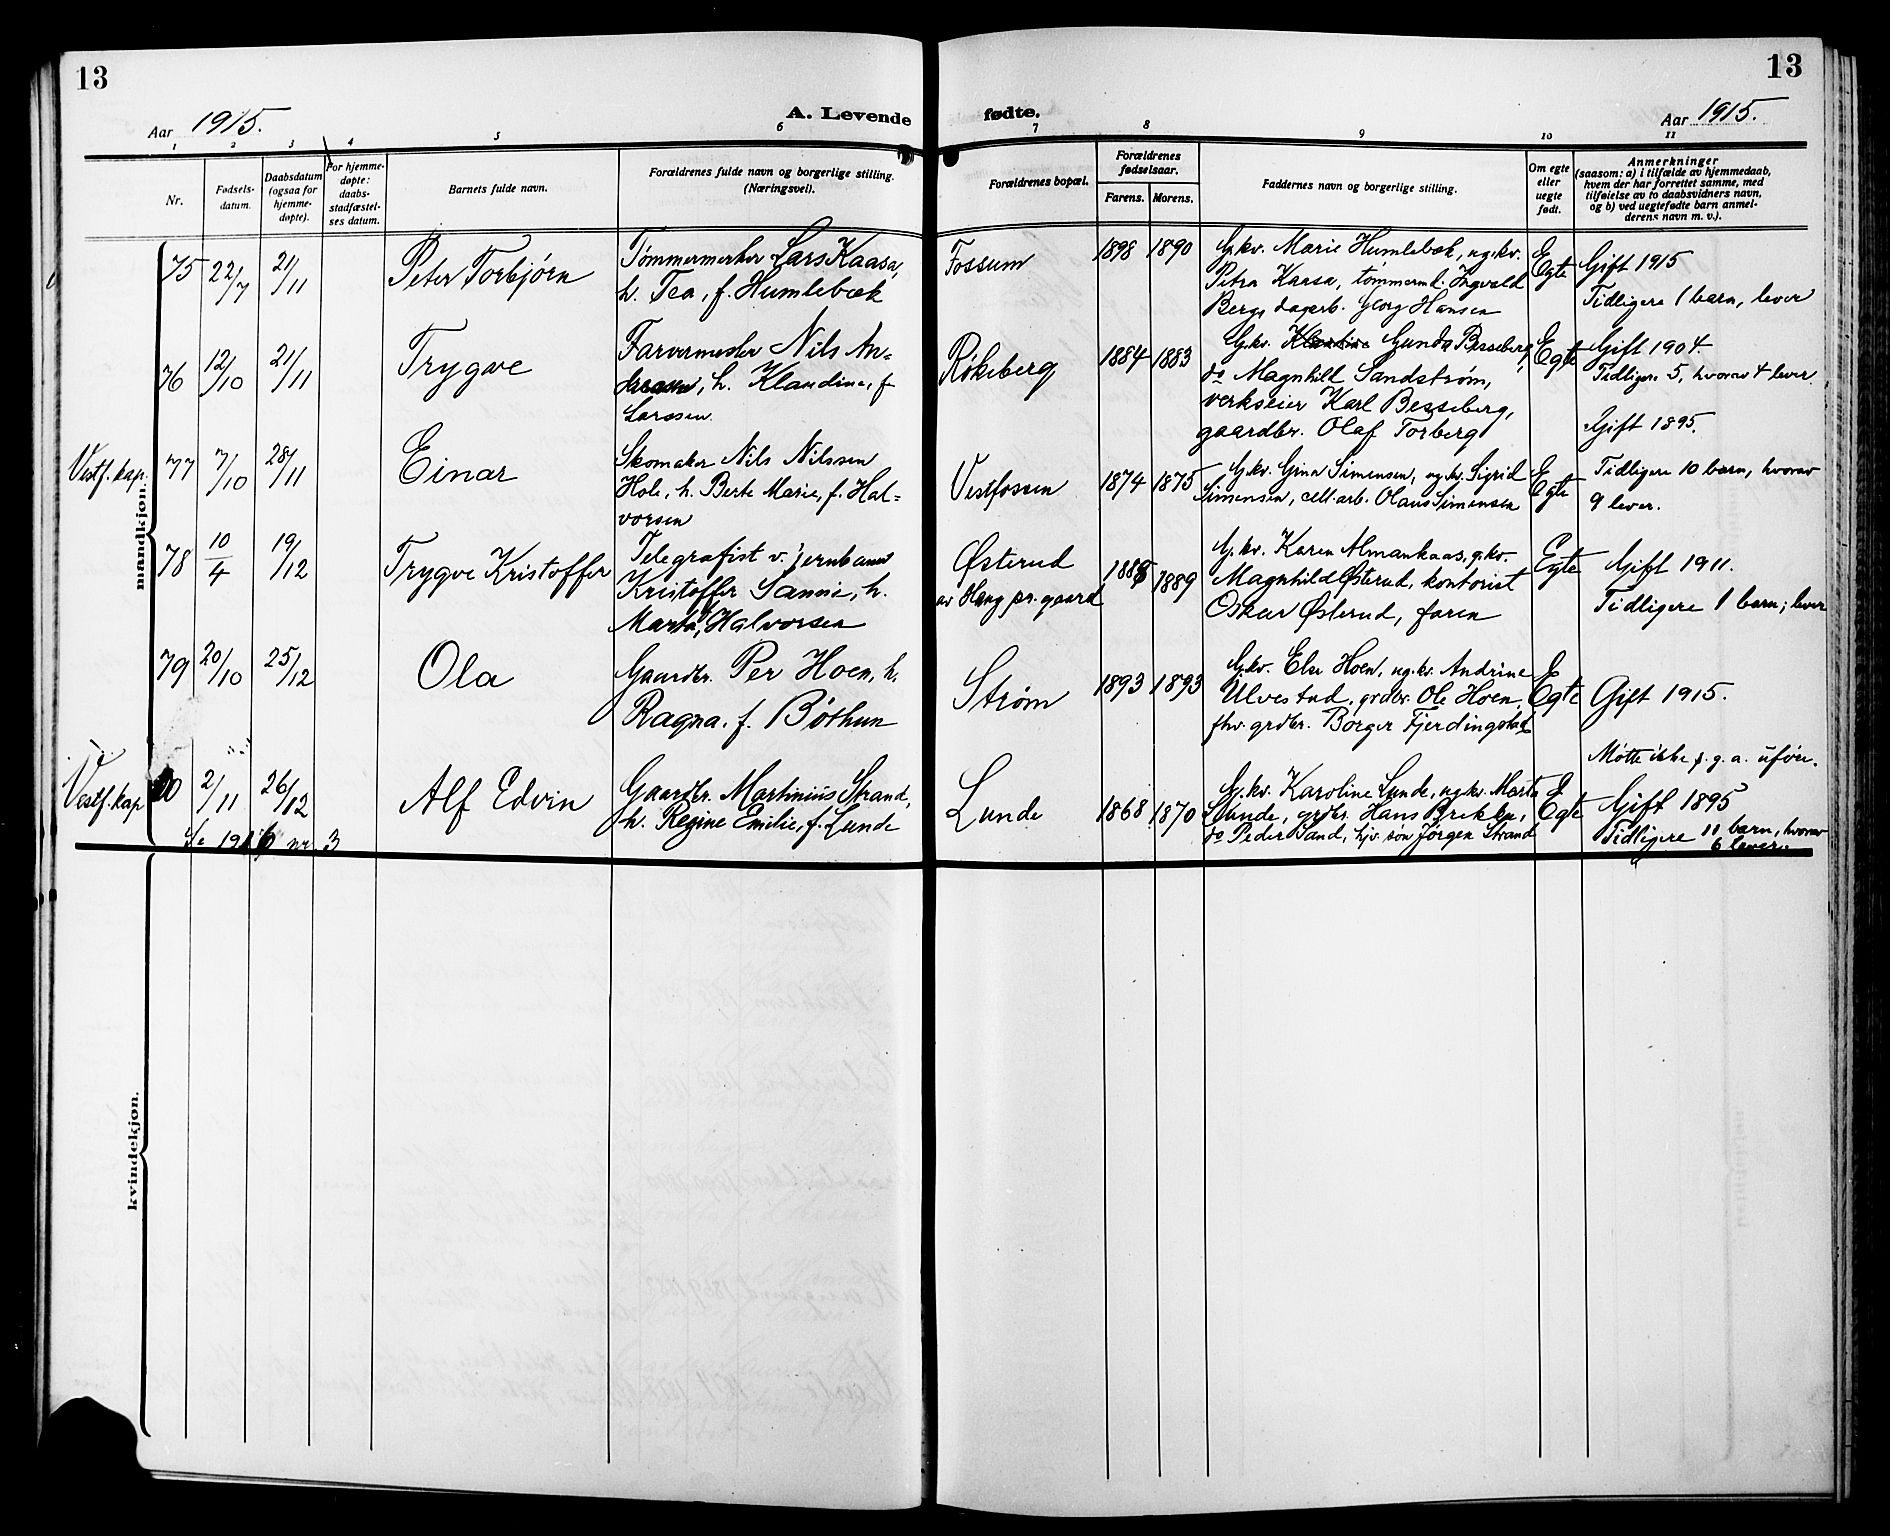 13
13
Aar 1915.
A. Levende fødte.
Aar 1915.
1 2 3 4 5 6 7 8 9 10 11
Nr.
Fødsels-
datum.
Daabsdatum
(ogsaa for
hjemme-
døpte).
For hjemme-
døpte:
daabs-
stadfæstel-
ses datum.
Barnets fulde navn.
Forældrenes fulde navn og borgerlige stilling.
(Næringsvei).
Forældrenes bopæl.
Forældrenes
fødselsaar.
Farens. Morens.
Faddernes navn og borgerlige stilling.
Om egte
eller
uegte
født.
Anmerkninger
(saasom: a) i tilfælde av hjemmedaab,
hvem der har forrettet samme, med
tilføielse av to daabsvidners navn,
og b) ved uegtefødte barn anmel-
derens navn m. v.).
mandkjøn.
75 22/7 21/11
Peter Torbjørn
Tømmermerker Lars Kaasa,
h. Tea, f. Humlebæk
Fossum
1898 1890
G.kv. Marie Humlebæk, ug.kv.
Petra Kaasa, tømmerm. Ingvald
Berg, dagarb. Georg Hansen
E
Egte
Gift 1915
Tidligere 1 barn, lever
76 12/10 21/11
Trygve
Farvermester Nils An=
derssen, h. Klaudine, f.
Larssen.
Røkeberg
1884 1883
G.kv. Gunda Besseberg,
do Magnhill Sandstrøm,
verkseier Karl Besseberg,
gaardbr. Olaf Torberg
E
Egte
Gift 1904.
Tidligere 5, hvorav 4 lever.
Vestf. kap.
77 7/10 28/11
Einar
Skomaker Nils Nilssen
Hole, h. Berte Marie, f. Hal=
vorsen
Vestfossen
1874 1875
G.kv. Gina Simensen, ug.kv. Sigrid
Simensen, cell.arb. Olaus Simensen
E
Egte
Gift 1895.
Tidligere 10 barn, hvorav
9 lever.
78 10/4 19/12
Trygve Kristoffer
Telegrafist v. jernbanen
Kristoffer Sannæ, h.
Marta, Halvorsen
Østerud
av Haug pr.gaard
1889
G.kv. Karen Almankaas, g.kv.
Magnhild Østerud, kontorist
Oskar Østerud, faren
Egte
Gift 1911.
Tidligere 1 barn; lever
79 20/10 25/12
Ola
Gaardbr. Per Hoen, h.
Ragna, f. Bøthun
Strøm
1893 1893
G.kv. Else Hoen, ug.kv. Andrine
Ulvestad, grdbr. Ole Hoen,
fhv. grdbr. Borger Fjerdingstad
E
Egte
Gift 1915.
Vestf. kap
80 2/11 26/12
Alf Edvin
Gaardbr. Martinius Strand,
h. Regine Emilie, f. Lunde
Lunde
1868 1870
G.kv. Karoline Lunde, ug.kv. Marta
Lunde, grdbr. Hans Brekke,
do Peder Sand, hjv. søn Jørgen Strand
E
Egte
Møtte ikke p. g. a. uføre.
Gift 1895
Tidligere 11 barn, hvorav
6 lever.
Se 1916 nr. 3
kvindekjøn.